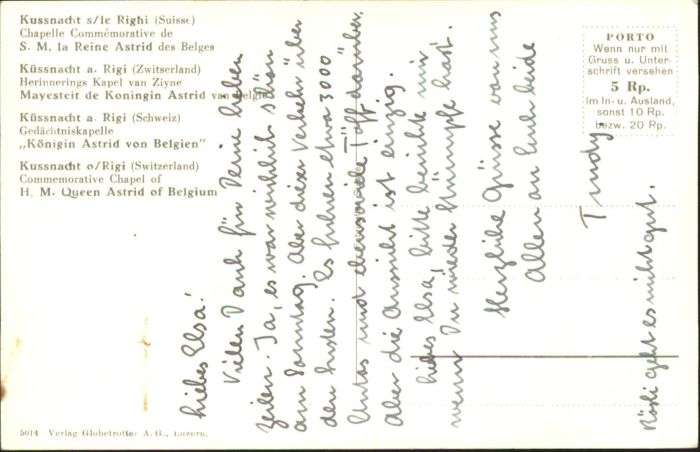 Kussnacht s/le Righi (Suisse)
Chapelle Commémorative de
S. M. la Reine Astrid des Belges
Küssnacht a. Rigi (Zwitserland)
Herinnerings Kapel van Ziyne
Mayesteit de Koningin Astrid van Belgie
Küssnacht a. Rigi (Schweiz)
Gedächtniskapelle
„Königin Astrid von Belgien"
Kussnacht o/Rigi (Switzerland)
Commemorative Chapel of
H. M. Queen Astrid of Belgium
PORTO
Wenn nur mit
Gruss u. Unter-
schrift versehen
5 Rp.
im In- u. Ausland,
sonst 10 Rp.
bezw. 20 Rp.
Liebes Elsa!
Vielen Dank für Deine lieben
Zeilen. Ja, es war wirklich schön
am Sonntag. Aber dieser Verkehr über
den Susten. Es fuhren etwa 3000
Autos und ebensoviele Töff darüber.
Aber die Aussicht ist einzig.
Liebes Elsa, bitte berichte mir
wenn Du wieder Strümpfe hast.
Herzliche Grüsse von uns
Allen an Euch beide
Trudy.
Rösli geht es nicht gut.
5014 Verlag Globetrotter A. G., Luzern.